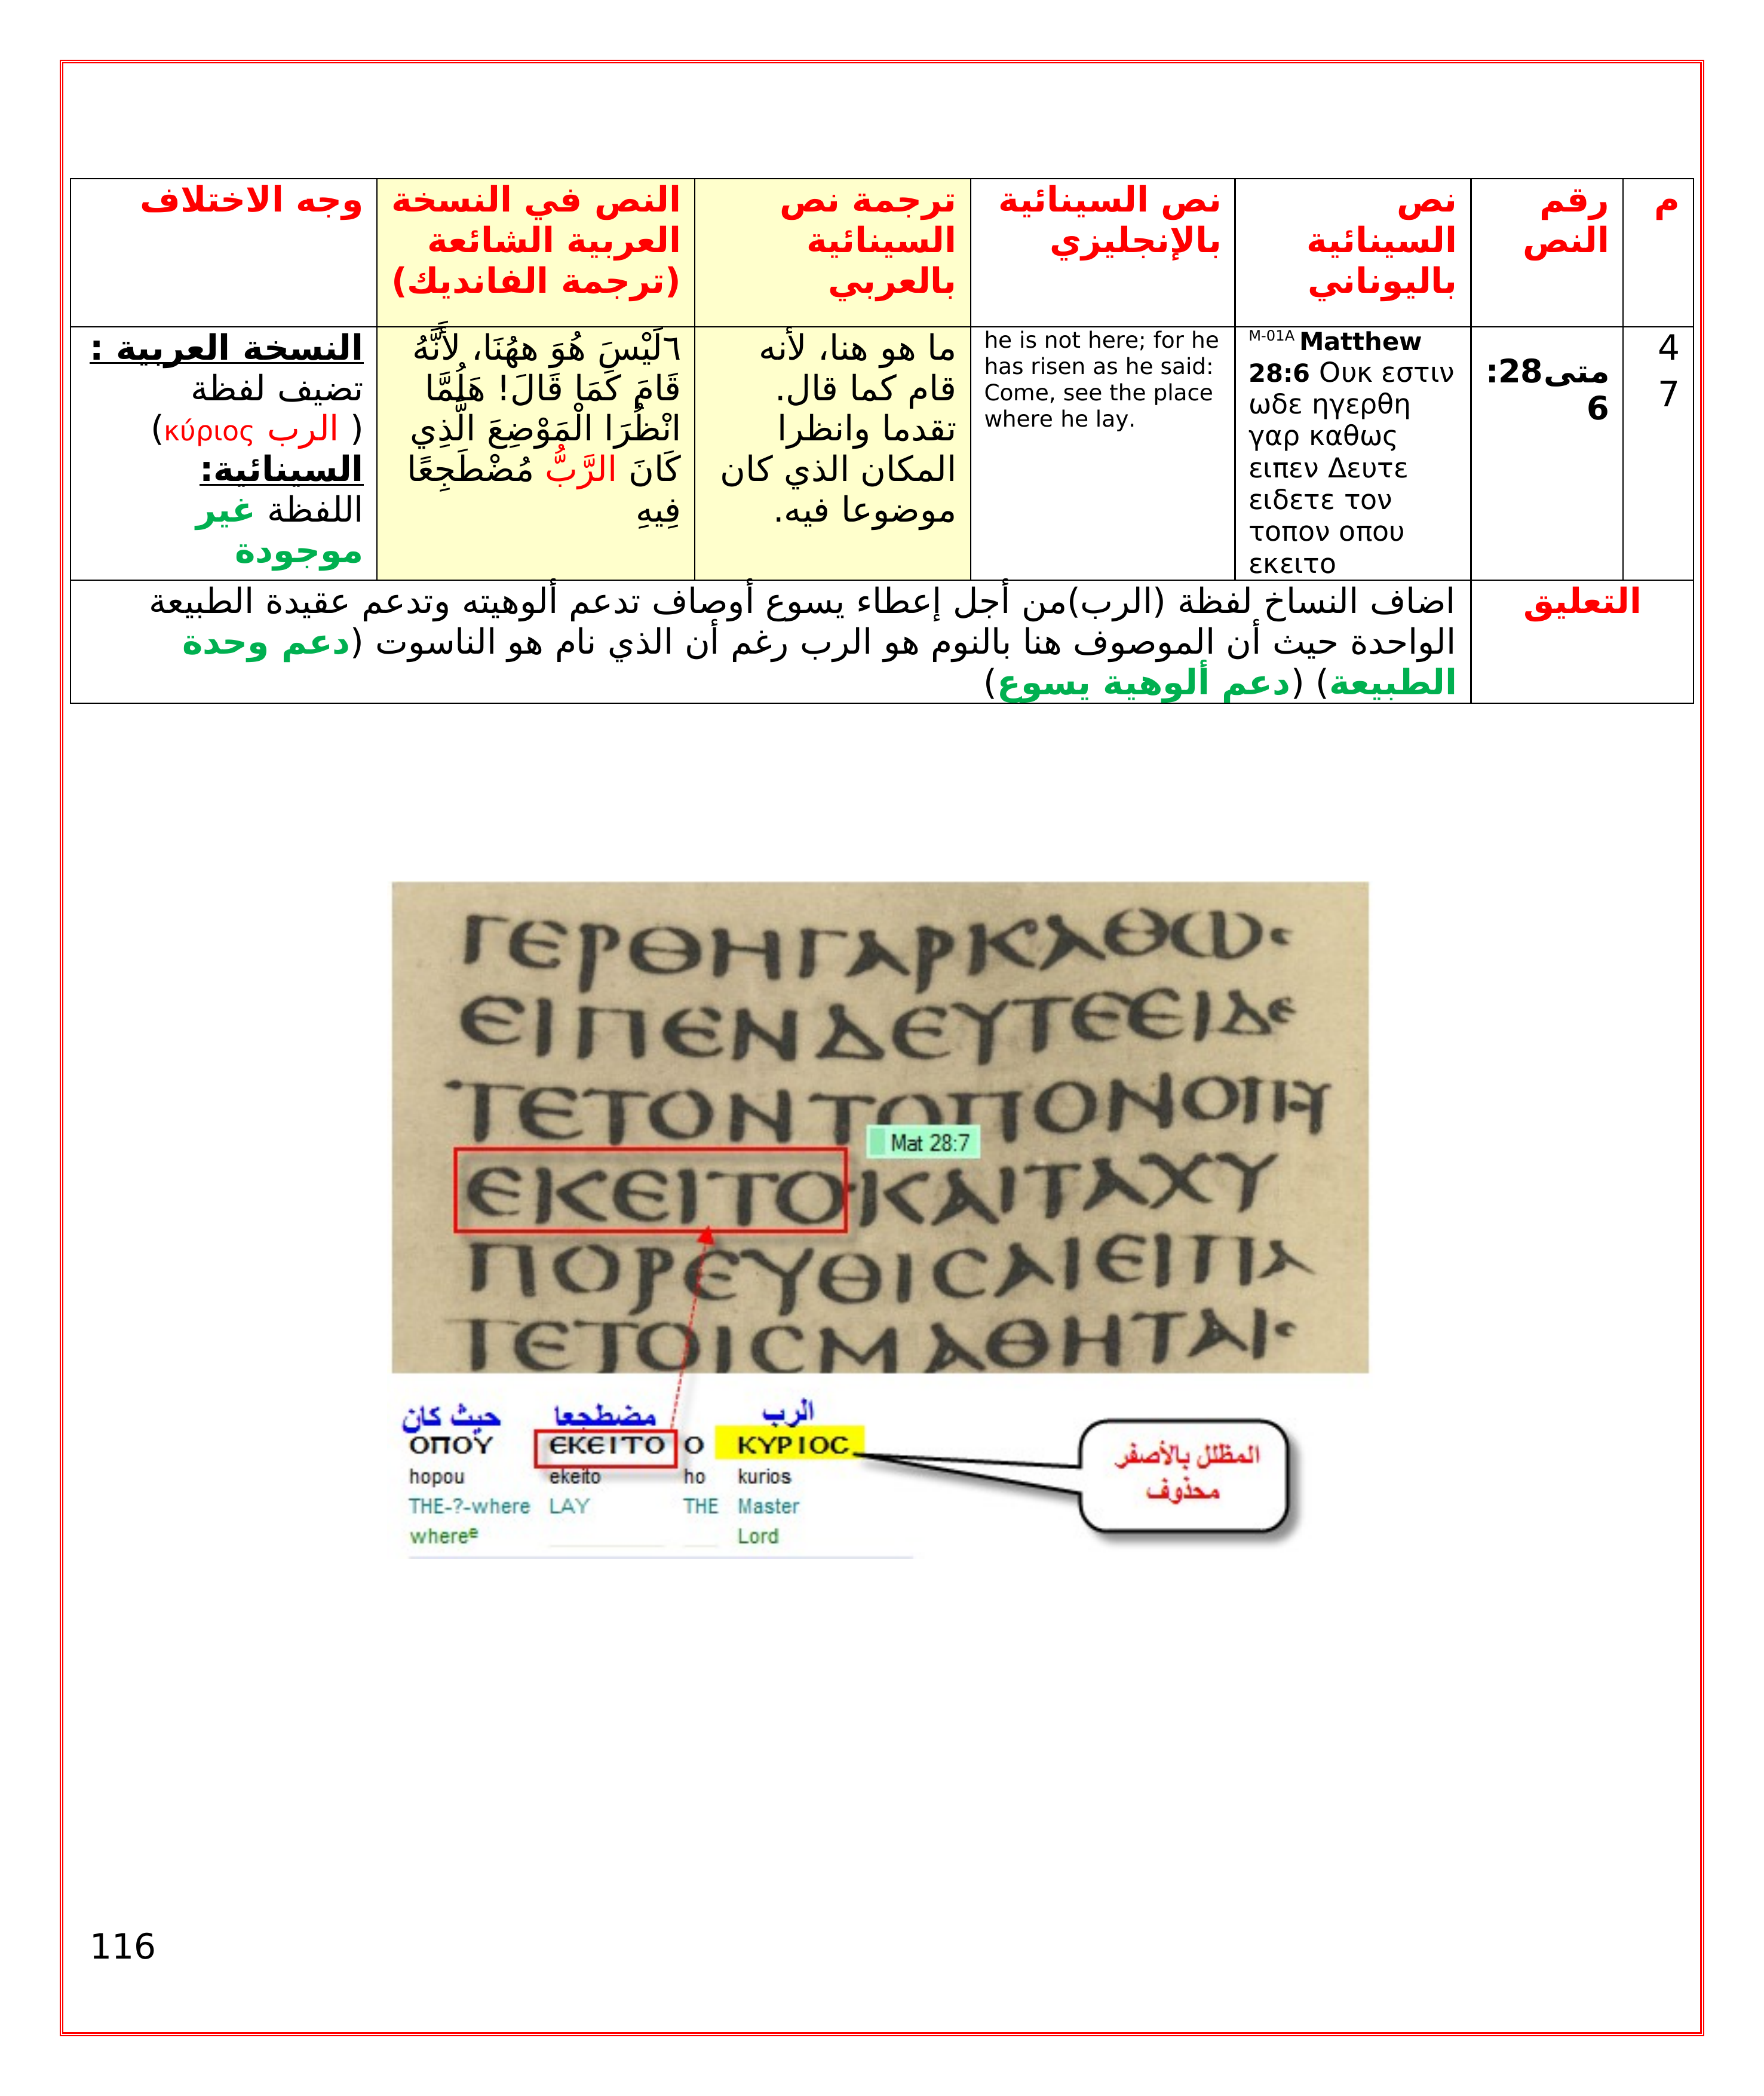 م
رقم
النص
نص
السينائية
باليوناني
نص السينائية
بالإنجليزي
ترجمة نص
السينائية
بالعربي
النص في النسخة
العربية الشائعة
(ترجمة الفانديك)
وجه الاختلاف
4
7
متى28:
6
M-01A Matthew
28:6 Ουκ εστιν
ωδε ηγερθη
γαρ καθως
ειπεν Δευτε
ειδετε τον
τοπον οπου
εκειτο
he is not here; for he
has risen as he said:
Come, see the place
where he lay.
ما هو هنا، لأنه
قام كما قال.
تقدما وانظرا
المكان الذي كان
موضوعا فيه.
٦لَيْسَ هُوَ ههُنَا، لأَنَّهُ
قَامَ كَمَا قَالَ! هَلُمَّا
انْظُرَا الْمَوْضِعَ الَّذِي
كَانَ الرَّبُّ مُضْطَجِعًا
فِيهِ
النسخة العربية :
تضيف لفظة
( الرب κύριος)
السينائية:
اللفظة غير
موجودة
التعليق
اضاف النساخ لفظة (الرب)من أجل إعطاء يسوع أوصاف تدعم ألوهيته وتدعم عقيدة الطبيعة
الواحدة حيث أن الموصوف هنا بالنوم هو الرب رغم أن الذي نام هو الناسوت (دعم وحدة
الطبيعة) (دعم ألوهية يسوع)
ΓΕΡΘΗΓΑΡΚΑΘΩC
ΕΙΠΕΝΔΕΥΤΕΕΙΔΕ
ΤΕΤΟΝΤΟΠΟΝΟΠΟΥ
Mat 28:7
ΕΚΕΙΤΟΚΑΙΤΑΧΥ
ΠΟΡΕΥΘΙCΑΙΕΙΠΑ
ΤΕΤΟΙCΜΑΘΗΤΑΙC
حيث كان مضطجعا الرب
ΟΠΟΥ ΕΚΕΙΤΟ Ο ΚΥΡΙΟC
hopou ekeito ho kurios
THE-?-where LAY THE Master
whereᵉ Lord
المظلل بالأصفر
محذوف
116